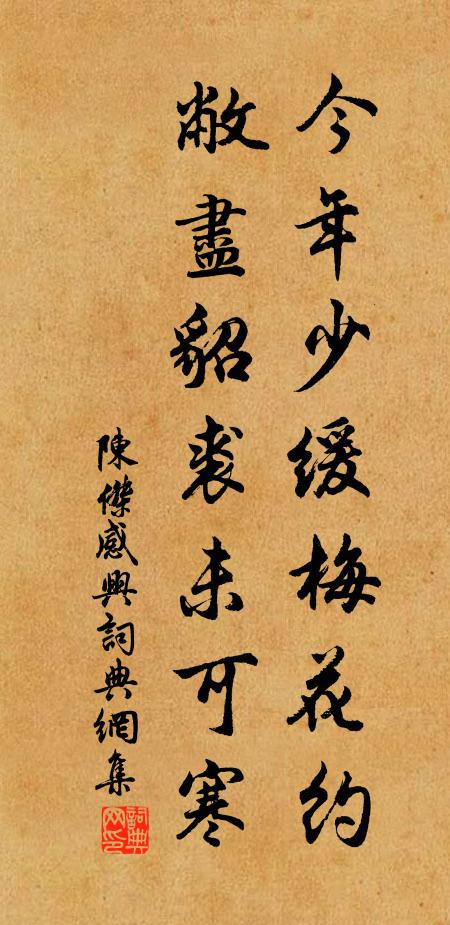 今年少緩梅花約
敝盡貂裘未可寒
陳傑感興詞典網集
詞典網印